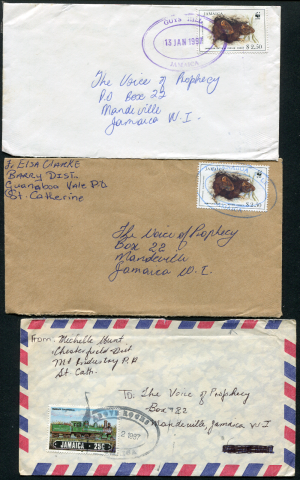 JAMAICA
13 JAN 1987
JAMAICA
$2.50
The Voice of Prophecy
P.O Box 22
Mandeville
Jamaica W.I.
f. Elsa Clarke
Barry Dist.
Guanaboa Vale P.O.
St. Catherine
$2.50
The Voice of Prophecy
Box 22
Mandeville
Jamaica W.I.
From: Michelle Hunt
Chesterfield Dist
St. Cath.
To: The Voice of Prophecy
Box 22
Mandeville, Jamaica W I
JAMAICA 25c